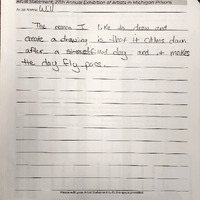 Artist Statement, 27th Annual Exhibition of Artists in Michigan Prisons
Artist Name: Will
The reason I like to draw and
create a drawing is that it calms down
after a stressful day and it makes
the day fly pass.